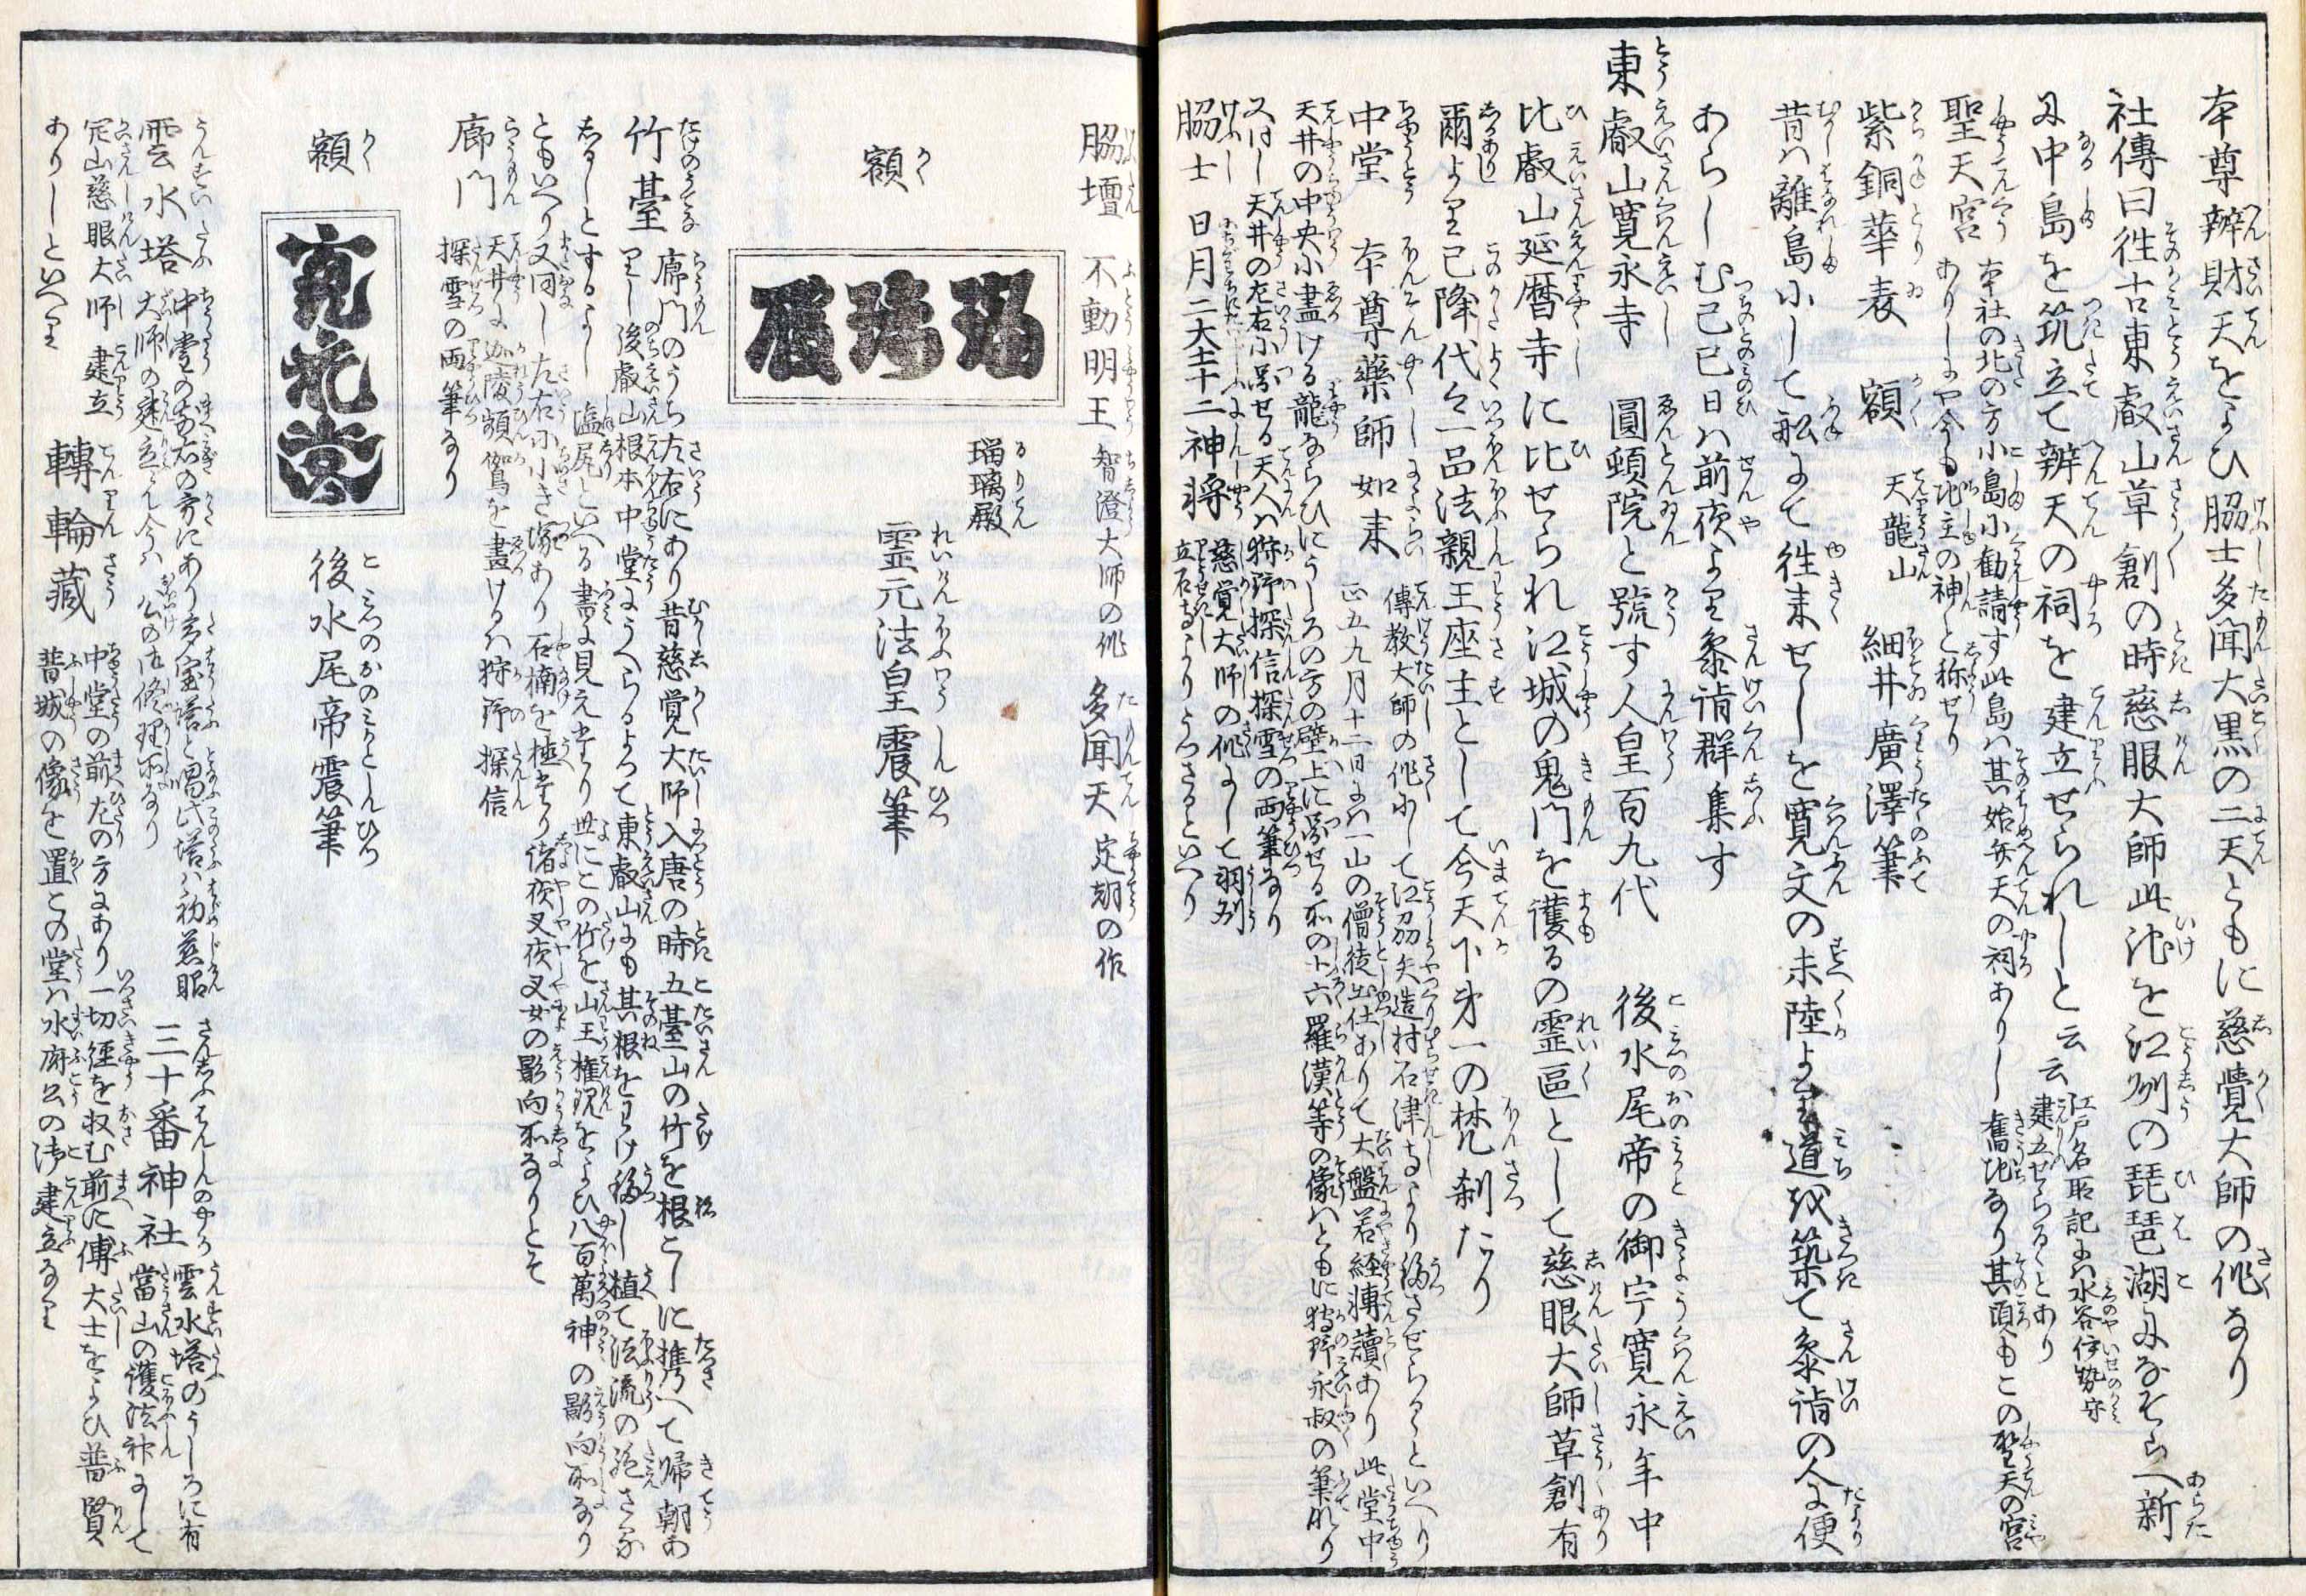 本尊辨財天をよひ脇士多聞大黒の二天ともに慈覺大師の作なり
社傳曰徃古東叡山草創の時慈眼大師此池を江州の琵琶湖になそらへ新
に中島を筑立て辨天の祠を建立せられしと云云
江戸名所記には水谷伊勢守
建立せらるゝとあり
聖天宮
本社の北の方小島に勧請す此島は其始弁天の祠ありし舊地なり其頃もこの聖天の宮
ありしにや今も地主の神と称せり
紫銅華表 額 天龍山 細井廣澤筆
昔は離島にして船にて徃来せしを寛文の末陸より道を築て参詣の人に便
あらしむ己巳日は前夜より参詣群集す
東叡山寛永寺 圓頓院と號す人皇百九代 後水尾帝の御宇寛永年中
比叡山延暦寺に比せられ江城の鬼門を護るの霊區として慈眼大師草創有
爾より已降代々一品法親王座主として今天下第一の梵刹たり
中堂 本尊藥師如来
傳教大師の作にして江州矢造村石津寺より移させらるゝといへり
正五九月十二日には一山の僧徒出仕ありて大盤若経轉讀あり此堂中
天井の中央に畫ける龍ならひにうしろの方の壁上に圖せる所の十六羅漢等の像はともに狩野永叔の筆なり
又同し天井の左右に圖せる天人は狩野探信探雪の両筆なり
脇士 日月二大士十二神将
慈覚大師の作にして羽州
立石寺よりうつさるといへり
脇壇 不動明王 智澄大師の作 多聞天 定朝の作
瑠璃殿
額 瑠璃殿 霊元法皇震筆
竹臺
廊門のうち左右にあり昔慈覚大師入唐の時五䑓山の竹を根こしに携へて帰朝あ
りし後叡山根本中堂にうへらるよつて東叡山にも其根をわけ移し植て法流の絶さる
しるしとするよし塩尻といへる書に見えたり世にこの竹を山王権現をよひ八百萬神の影向所なり
ともいへり又同し左右に小き塚あり石楠を植たり諸夜叉夜叉女の影向所なりとそ
廊門
天井に迦陵頻伽鳥を畫けるは狩野探信
探雪の両筆なり
額 後水尾帝震筆
雲水塔
中堂の前右の方にあり多宝塔と唱此塔は初慈眼
大師の建立にて今は
三十番神社
雲水塔のうしろに有
當山の護法神にして
慈眼大師建立
轉輪藏
中堂の前左の方にあり一切經を収む前に傅大士をよひ普賢
普城の像を置この堂は水府公の御建立なり
ありしといへり